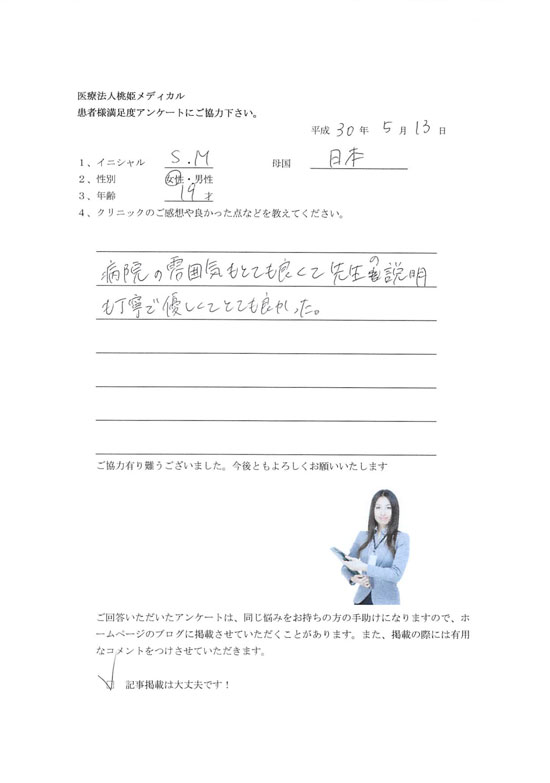 医療法人桃姫メディカル
患者様満足度アンケートにご協力下さい。
平成 30 年 5 月 13 日
1、イニシャル S.M 母国 日本
2、性別 女性・男性
3、年齢 19 才
4、クリニックのご感想や良かった点などを教えてください。
病院の雰囲気もとても良くて先生の説明
も丁寧で優しくてとても良かった。
ご協力有り難うございました。今後ともよろしくお願いいたします
ご回答いただいたアンケートは、同じ悩みをお持ちの方の手助けになりますので、ホ
ームページのブログに掲載させていただくことがあります。また、掲載の際には有用
なコメントをつけさせていただきます。
□ 記事掲載は大丈夫です！